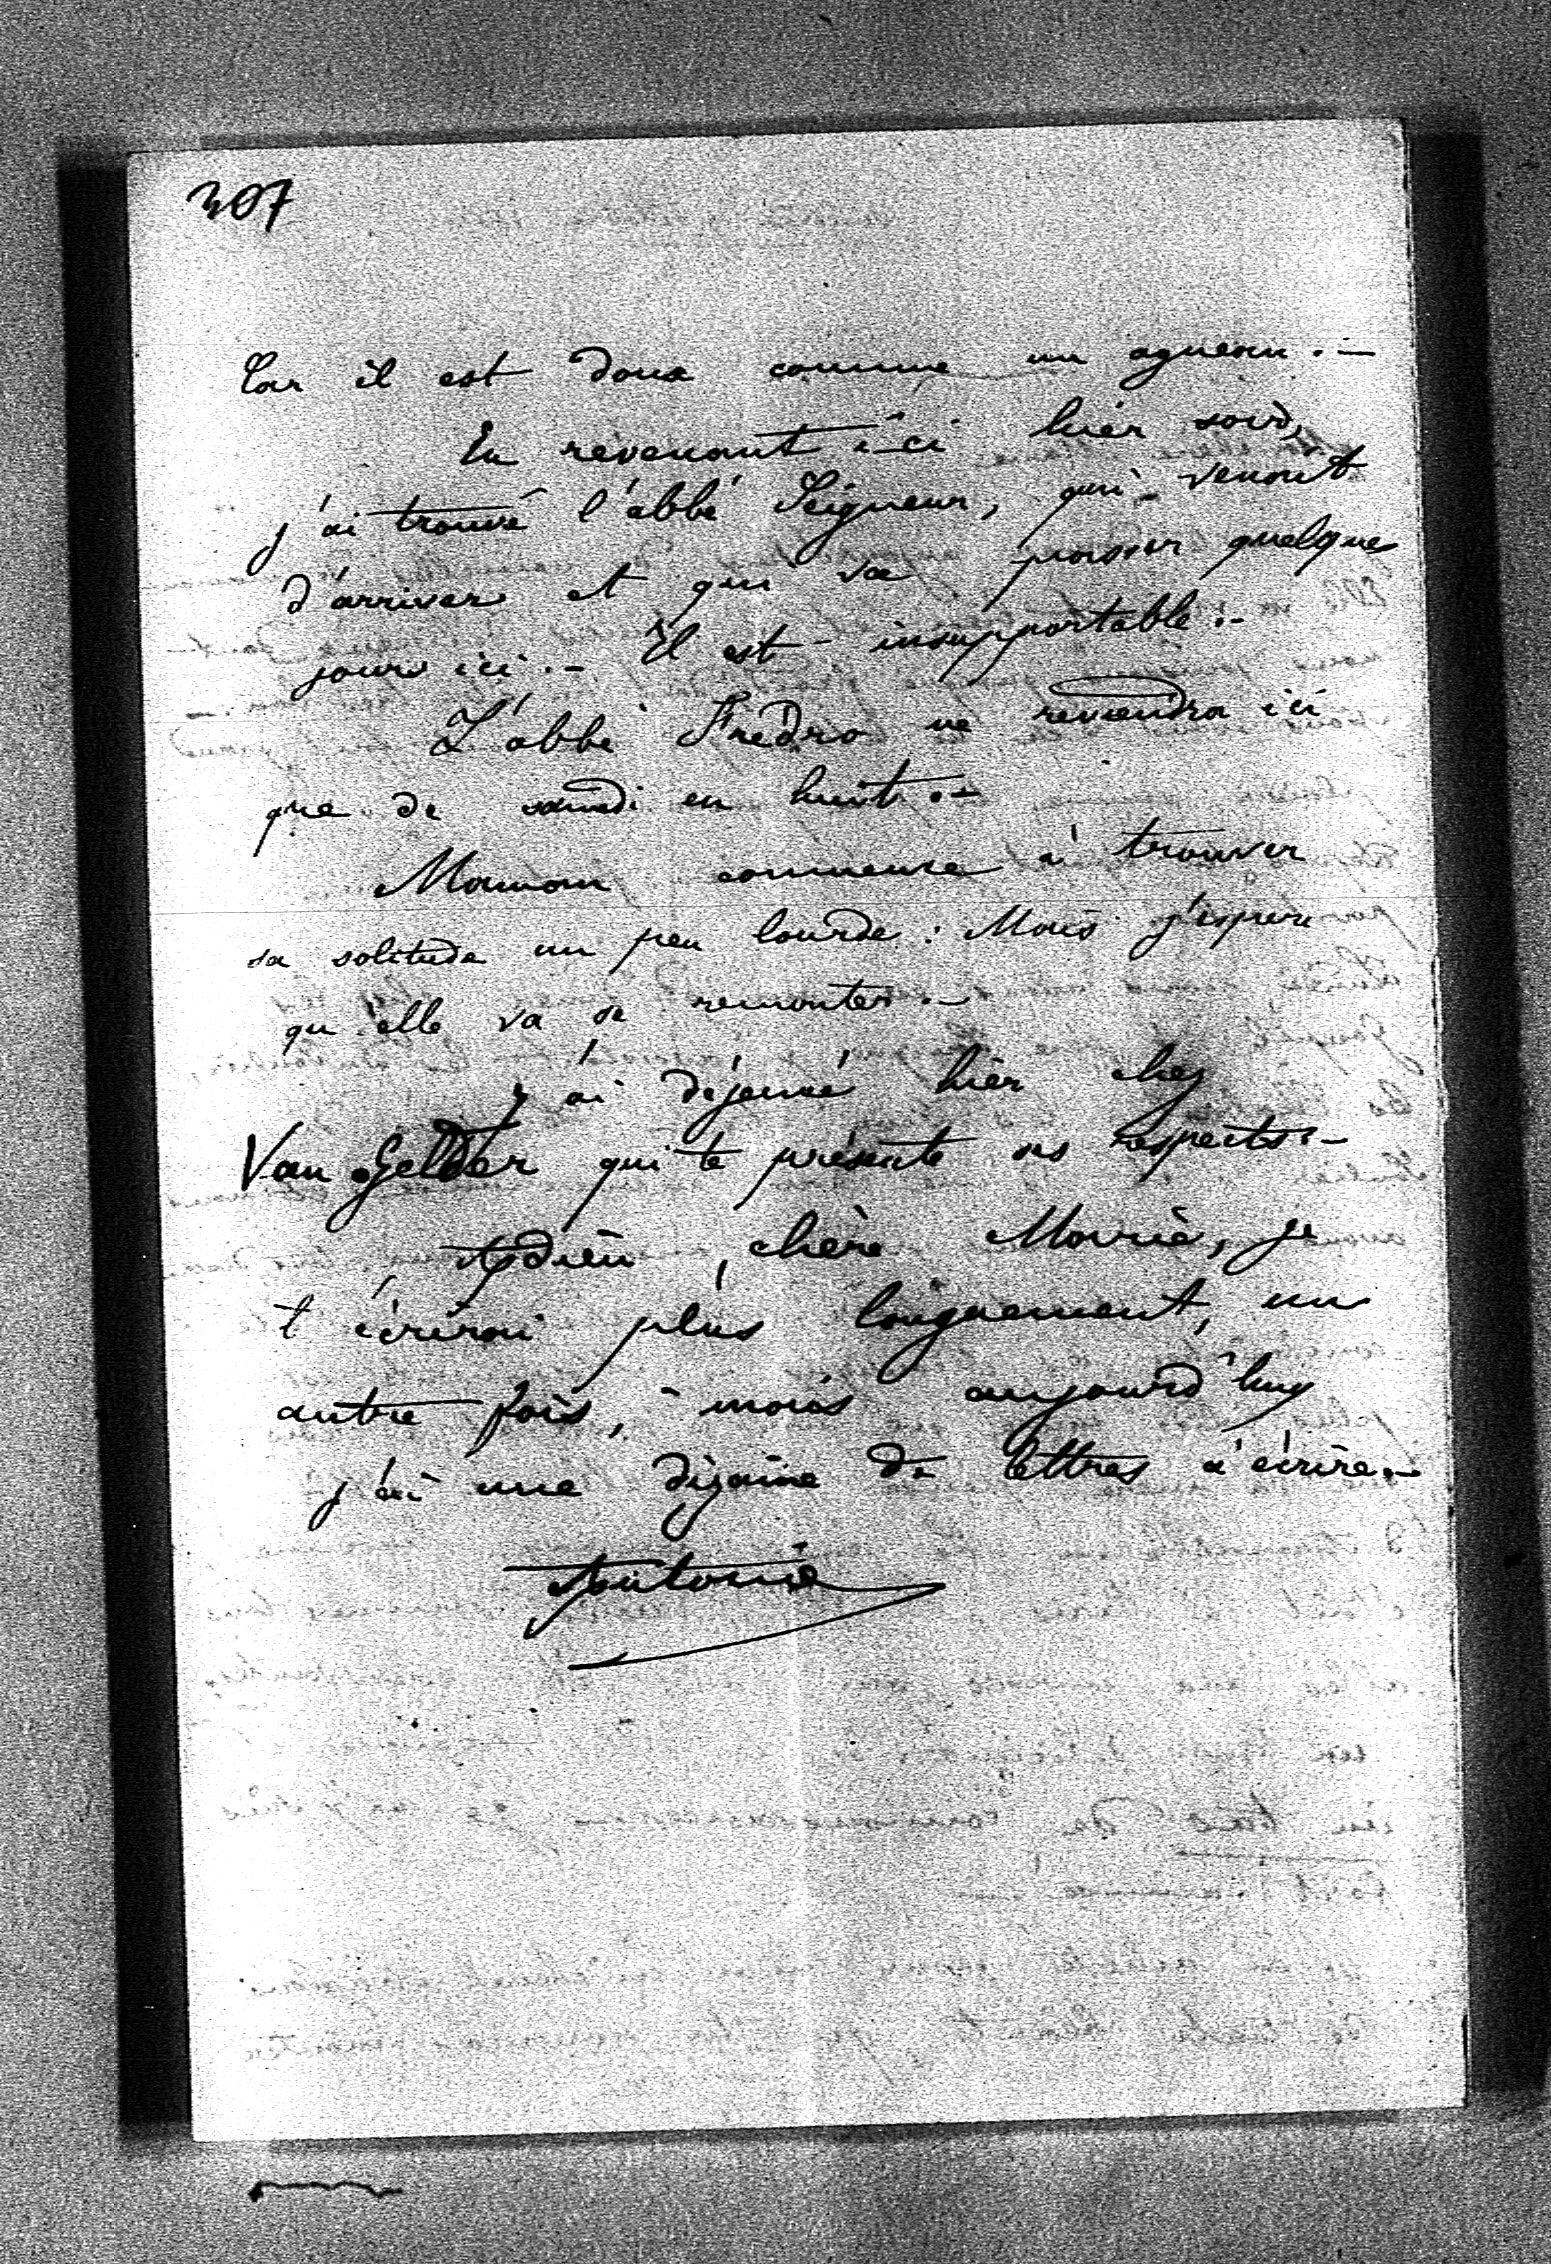 307
Car il est doux comme un agneau. —
En revenant ici hier soir,
j'ai trouvé l'abbé Seigneur, qui venait
d'arriver et qui va passer quelques
jours ici. — Il est insupportable. —
L'abbé Fredro ne reviendra ici
que de samedi en huit. —
Maman commence à trouver
sa solitude un peu lourde : Mais j'espère
qu'elle va se remonter. —
J'ai déjeuné hier chez
Van Gelder qui te présente ses respects. —
Adieu, chère Marie, je
t'écrirai plus longuement, une
autre fois, mais aujourd'huy
j'ai une dizaine de lettres à écrire. —
Antonie